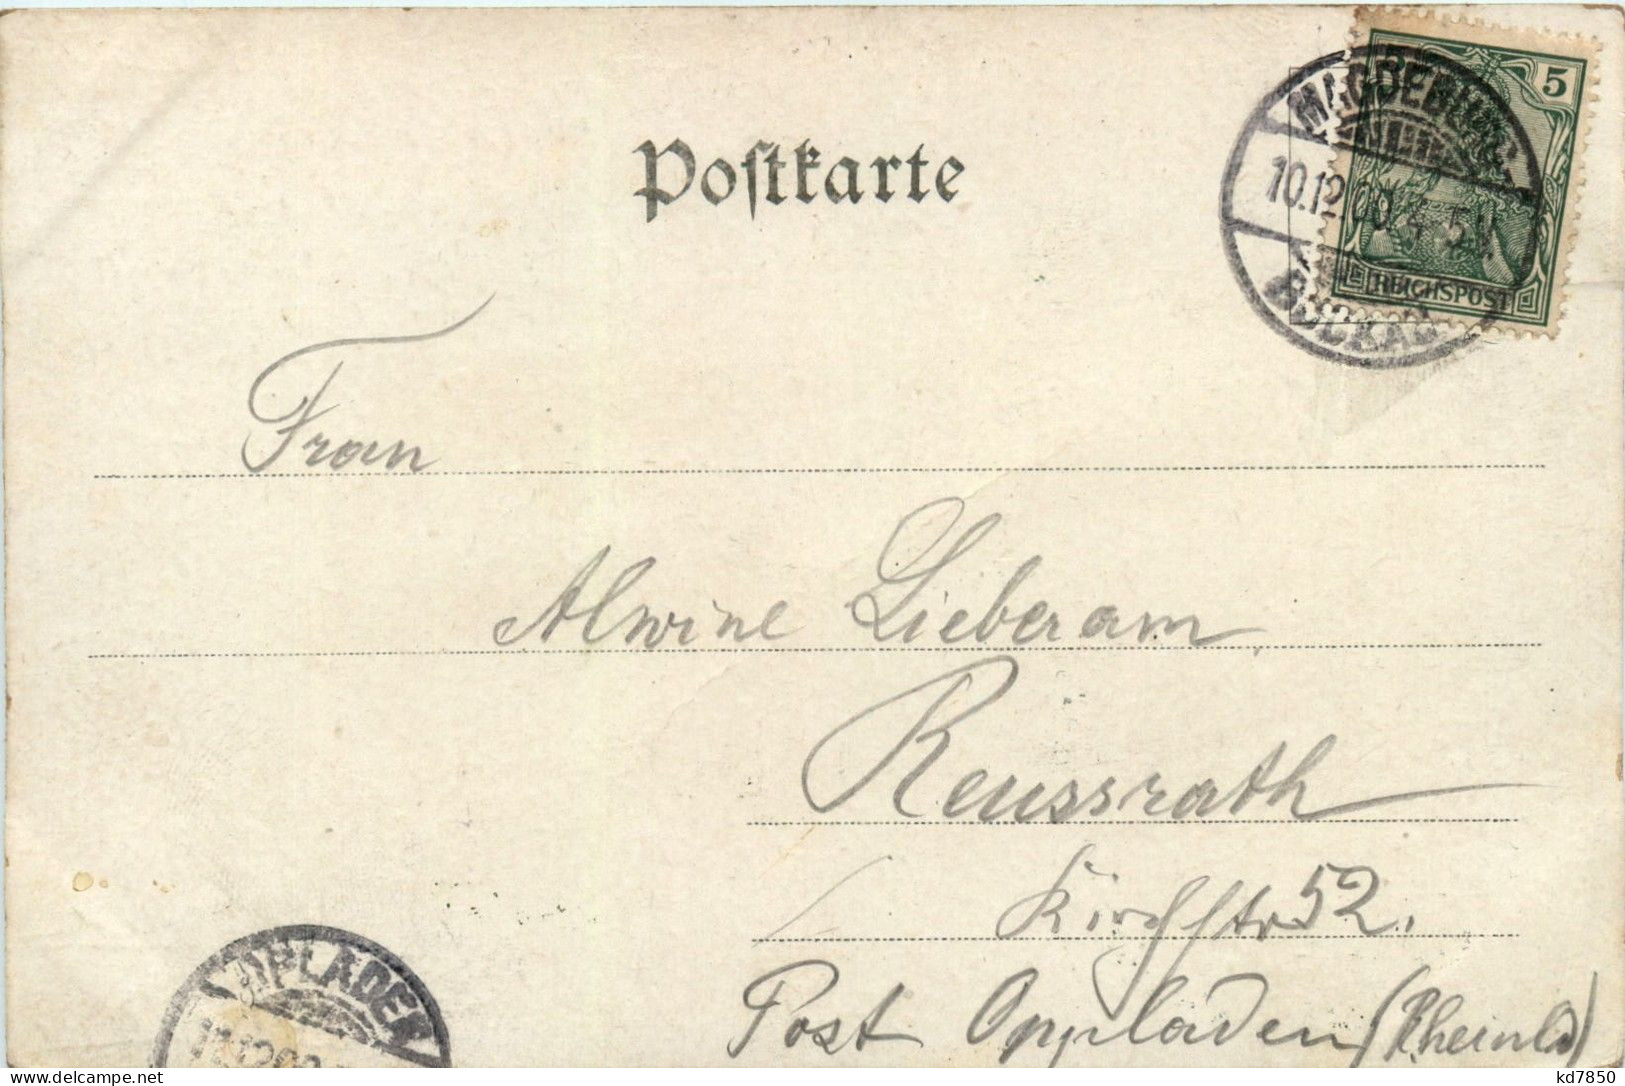 Postkarte
5
MAGDEBURG
10.12.00. 4-5N.
BUCKAU
REICHSPOST
Frau
Alwine Lieberam
Reussrath
Kirchstr 52.
Post Opladen (Rheinld)
OPLADEN
11.12.00
kd7850